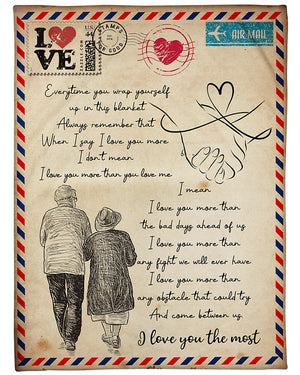 LOVE
US 44
STAMPS
FOR GOOD
AIR MAIL
Everytime you wrap yourself
up in this blanket
Always remember that
When I say I love you more
I don't mean
I love you more than you love me
I mean
I love you more than
the bad days ahead of us
I love you more than
any fight we will ever have
I love you more than
any obstacle that could try
And come between us.
I love you the most